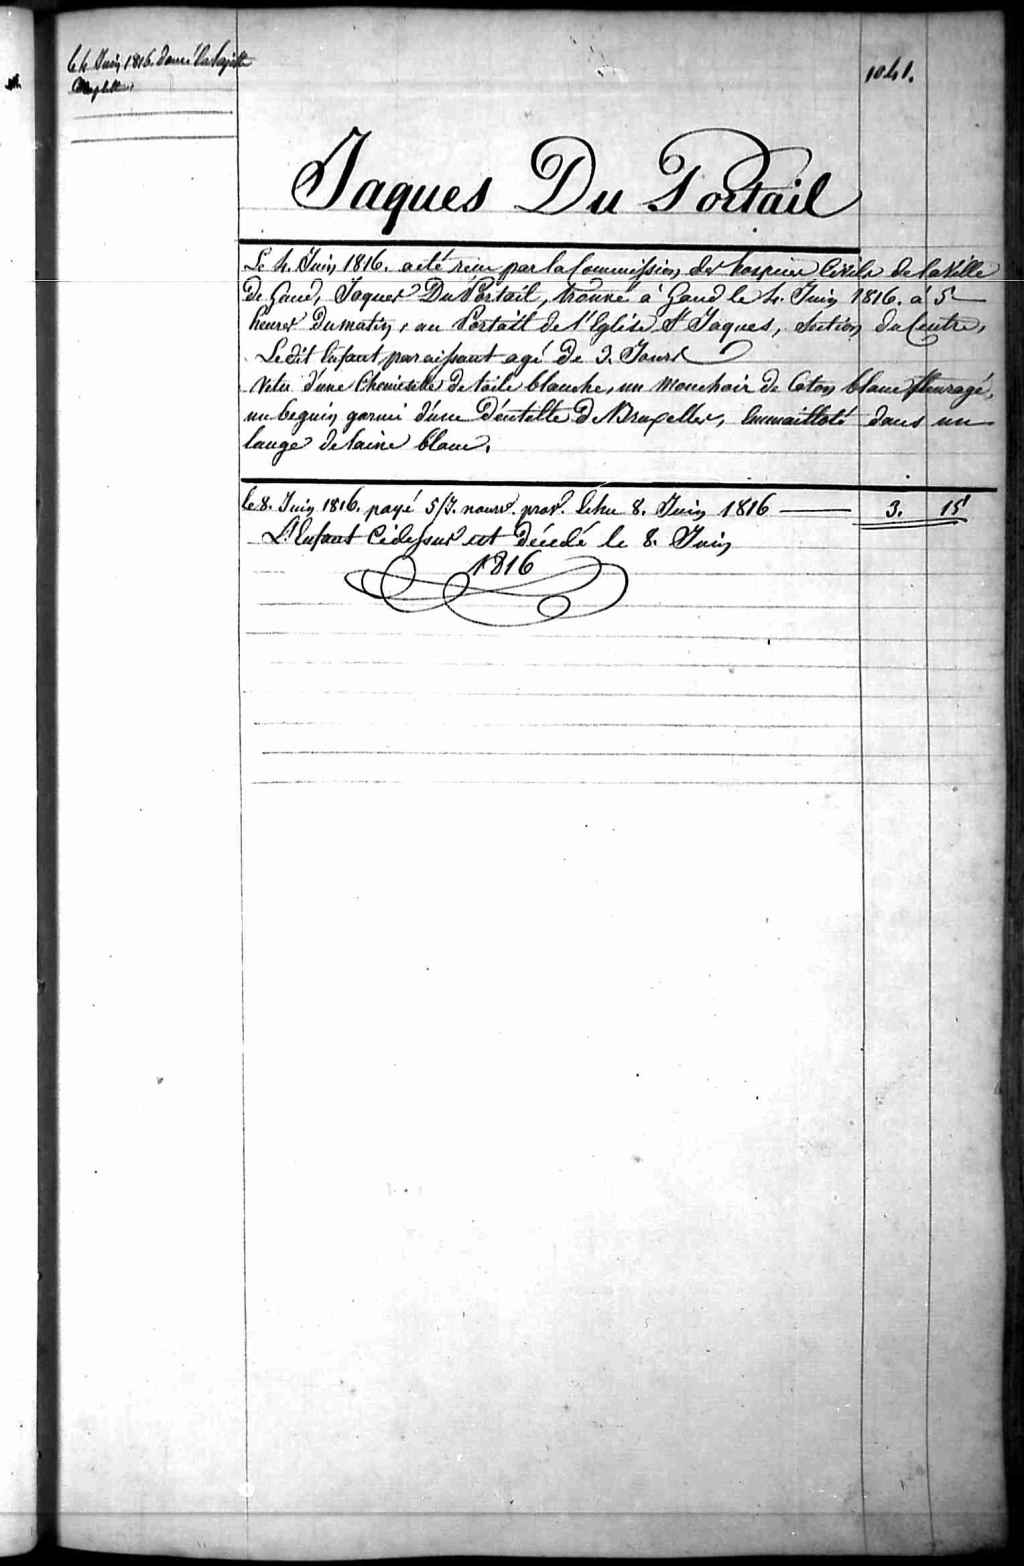 le 4 Juin 1816. donné la layette
Complette
1041.
Jaques Du Portail
Le 4. Juin 1816. a été réçu par la Commission des hospices Civils de la Ville
de Gand, Jaques Du Portail, trouvé à Gand le 4. Juin 1816. à 5
heures du matin, au Portail de l'Eglise St Jaques, Section du Centre,
Le dit Enfant paraissant agé de 3. Jours
Vetu d'une Chemisette de toile blanche, un mouchoir de Coton blanc fleuragé,
un beguin garni d'une déntelle de Bruxelles, Emmailloté dans un
lange de laine blanc.
le 8. Juin 1816. payé 5/J. nourr. prov. Echu 8. Juin 1816 3. 15
L'Enfant Cidessus est décédé le 8. Juin
1816